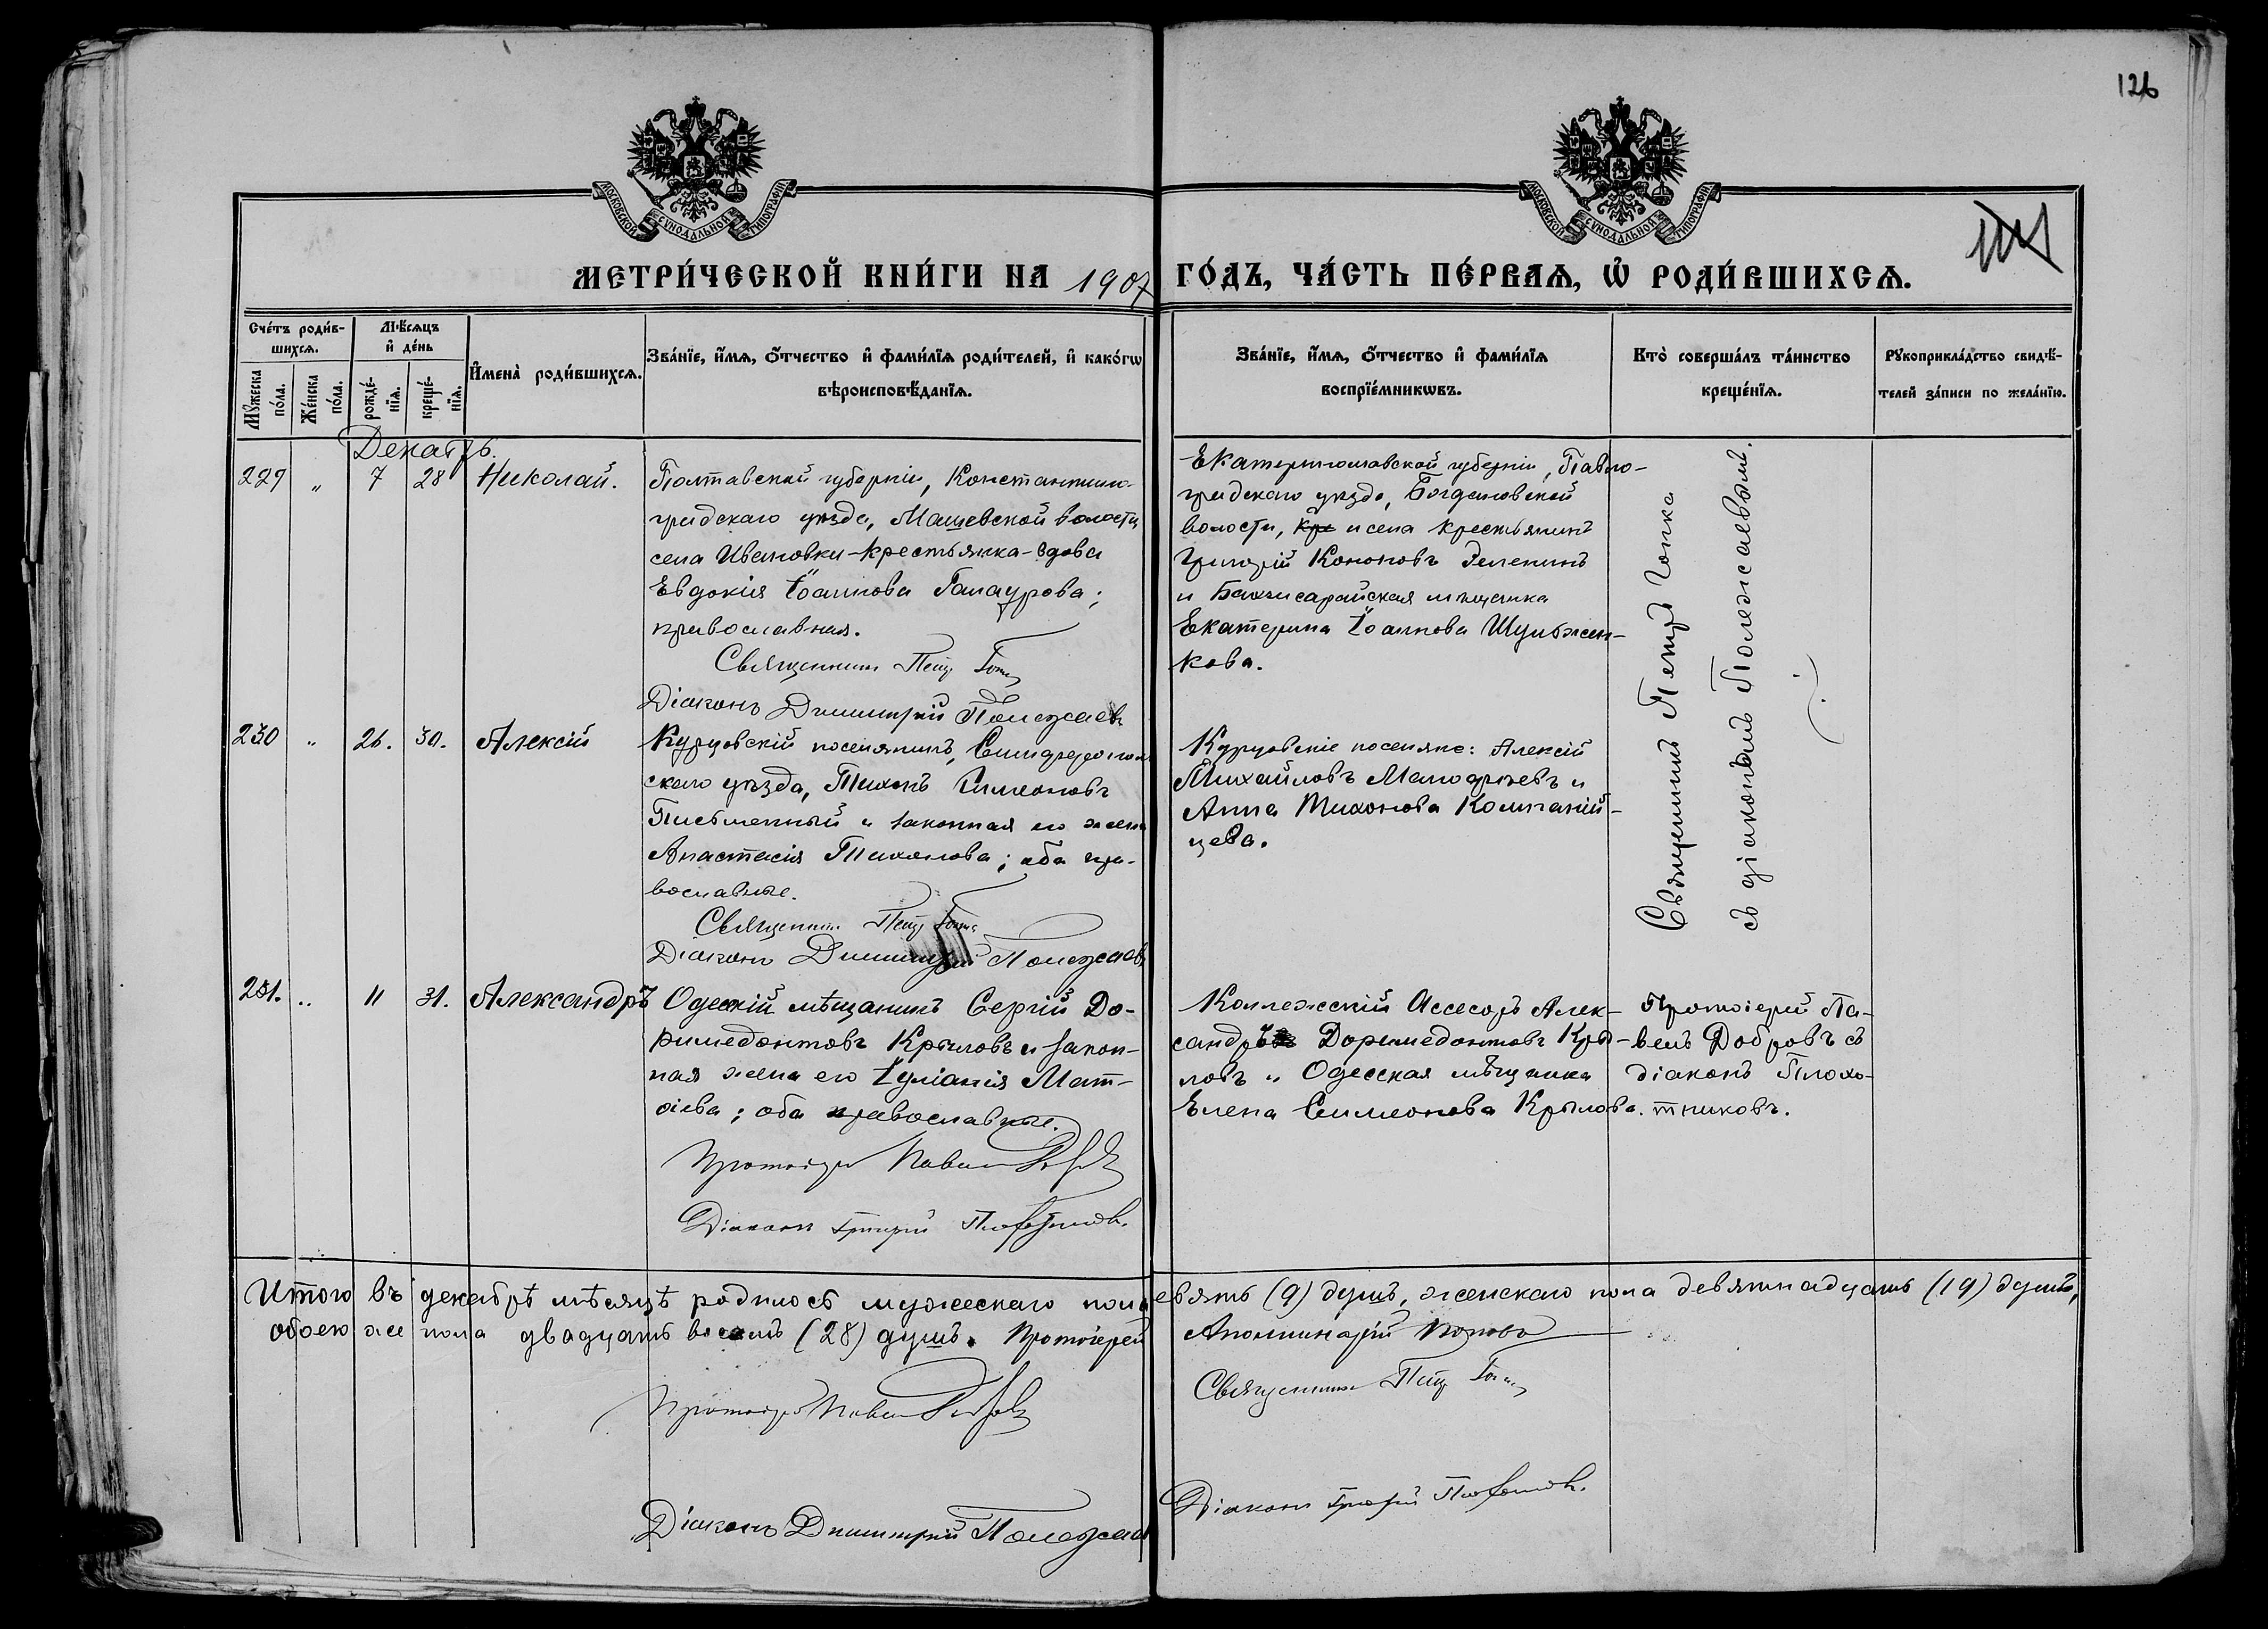 126
МОСКОВСКОЙ СѴНОДАЛЬНОЙ ТИПОГРАФІИ
МОСКОВСКОЙ СѴНОДАЛЬНОЙ ТИПОГРАФІИ
МЕТРИ́ЧЕСКОЙ КНИ́ГИ НА 1907 ГО́ДЪ, ЧА́СТЬ ПЕ́РВАѦ, Ѡ РОДИ́ВШИХСѦ.
Сче́тъ роди́в-
шихсѧ.
Мꙋжеска по́ла.
Же́нска по́ла.
Мѣ́сѧцъ
и҆ де́нь
рожде́-
нїѧ.
креще́-
нїѧ.
И҆мена̀ роди́вшихсѧ.
Зва́нїе, и҆́мѧ, ѻ҆́тчество и҆ фами́лїѧ роди́телей, и҆ како́гѡ
вѣроисповѣ́данїѧ.
Зва́нїе, и҆́мѧ, ѻ҆́тчество и҆ фами́лїѧ
воспрїе́мникѡвъ.
Кто̀ соверша́лъ та́инство
креще́нїѧ.
Рꙋкоприкла́дство свидѣ́-
телей за́писи по жела́нїю.
Декабрь.
229 " 7 28 Николай.
Полтавской губерніи, Константино-
градскаго уѣзда, Машевской волости
села Ивановки-крестьянка-вдова
Евдокія Іоаннова Галаурова;
православная.
Священникъ Петръ
Діаконъ Димитрій Полежаевъ
Екатеринославской губерніи, Павло-
градскаго уѣзда, Богдановской
волости, и села крестьянинъ
Григорій Кононовъ Зеленинъ
и Бахчисарайская мѣщанка
Екатерина Іоаннова Шульжен-
кова.
Священникъ Петръ Гопка
съ діакономъ Полежаевымъ.
230 " 26. 30. Алексій
Курцовскій поселянинъ, Симферополь
скаго уѣзда, Тихонъ Симеоновъ
Письменный и законная его жена
Анастасія Тихонова; оба пра-
вославные.
Священникъ Петръ
Діаконъ Димитрій Полежаевъ
Курцовскіе поселяне: Алексій
Михайловъ Малофѣевъ и
Анна Тихонова Компаній-
цева.
231. " 11 31. Александръ
Одесскій мѣщанинъ Сергій До-
римедонтовъ Крыловъ и закон-
ная жена его Іуліанія Мат-
ѳіева; оба православные.
Протоіерей Павелъ Добровъ
Діаконъ Григорій Плохотниковъ.
Коллежскій Ассесоръ Алек-
сандръ Доримедонтовъ Кры-
ловъ и Одесская мѣщанка
Елена Симеонова Крылова.
Протоіерей Па-
велъ Добровъ съ
діаконъ Плохо-
тниковъ.
Итого въ декабрѣ мѣсяцѣ родилось мужескаго пола евять (9) душъ, женскаго пола девятнадцать (19) душъ,
обоего же пола двадцать восемь (28) душъ. Протоіерей Аполлинарій Поповъ
Протоіерей Павелъ Добровъ
Священникъ Петръ
Діаконъ Димитрій Полежаевъ
Діаконъ Григорій Плохотниковъ.